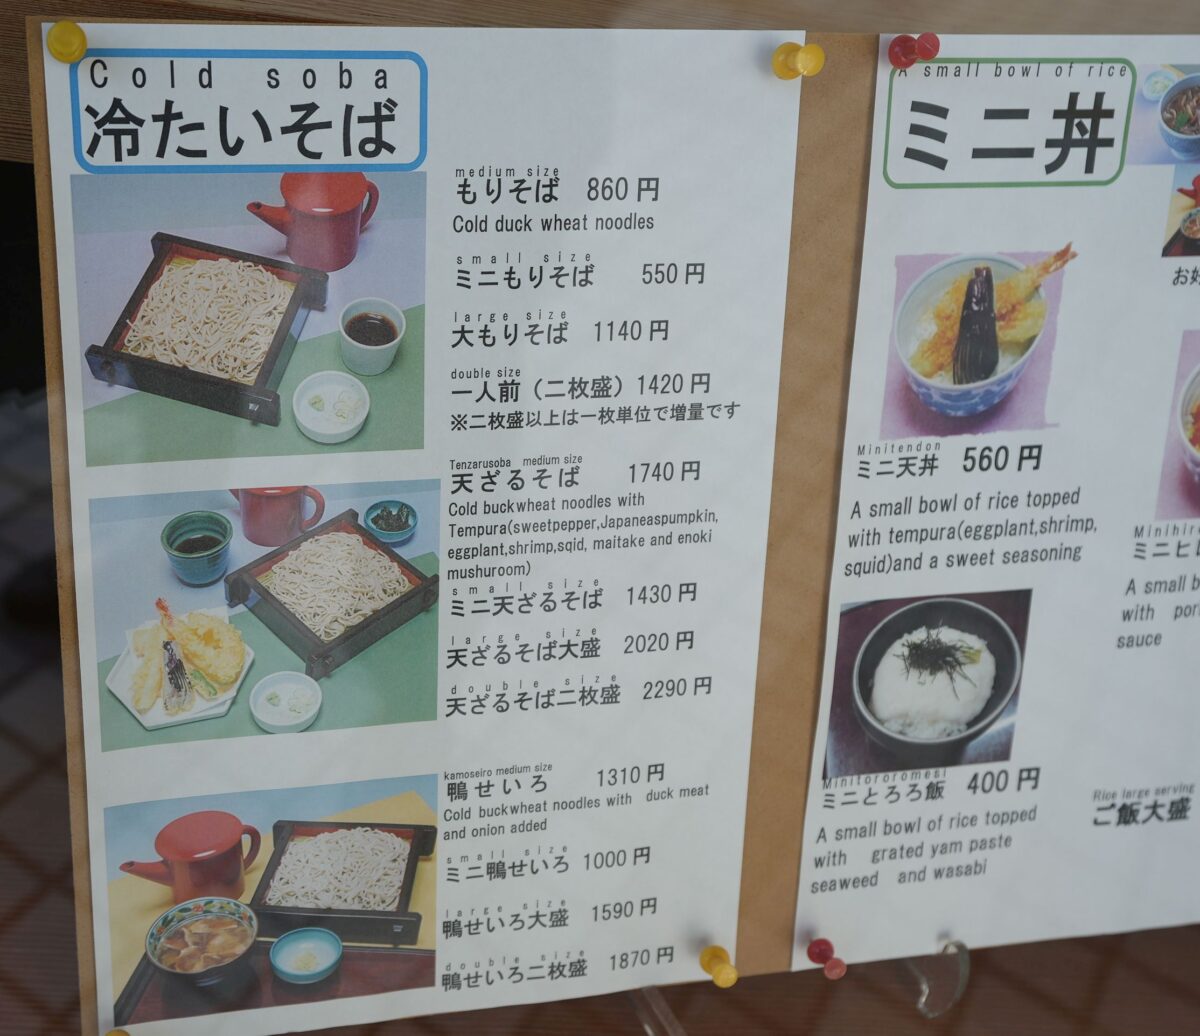 Cold soba
冷たいそば
medium size
もりそば 860円
Cold duck wheat noodles
small size
ミニもりそば 550円
large size
大もりそば 1140円
double size
一人前（二枚盛）1420円
※二枚盛以上は一枚単位で増量です
Tenzarusoba medium size
天ざるそば 1740円
Cold buckwheat noodles with
Tempura(sweetpepper,Japaneaspumpkin,
eggplant,shrimp,sqid, maitake and enoki
mushuroom)
small size
ミニ天ざるそば 1430円
large size
天ざるそば大盛 2020円
double size
天ざるそば二枚盛 2290円
kamoseiro medium size
鴨せいろ 1310円
Cold buckwheat noodles with duck meat
and onion added
small size
ミニ鴨せいろ 1000円
large size
鴨せいろ大盛 1590円
double size
鴨せいろ二枚盛 1870円
A small bowl of rice
ミニ丼
Minitendon
ミニ天丼 560円
A small bowl of rice topped
with tempura(eggplant,shrimp,
squid)and a sweet seasoning
Minitororomesi
ミニとろろ飯 400円
A small bowl of rice topped
with grated yam paste
seaweed and wasabi
お好
Minihire
ミニヒレ
A small b
with por
sauce
Rice large serving
ご飯大盛